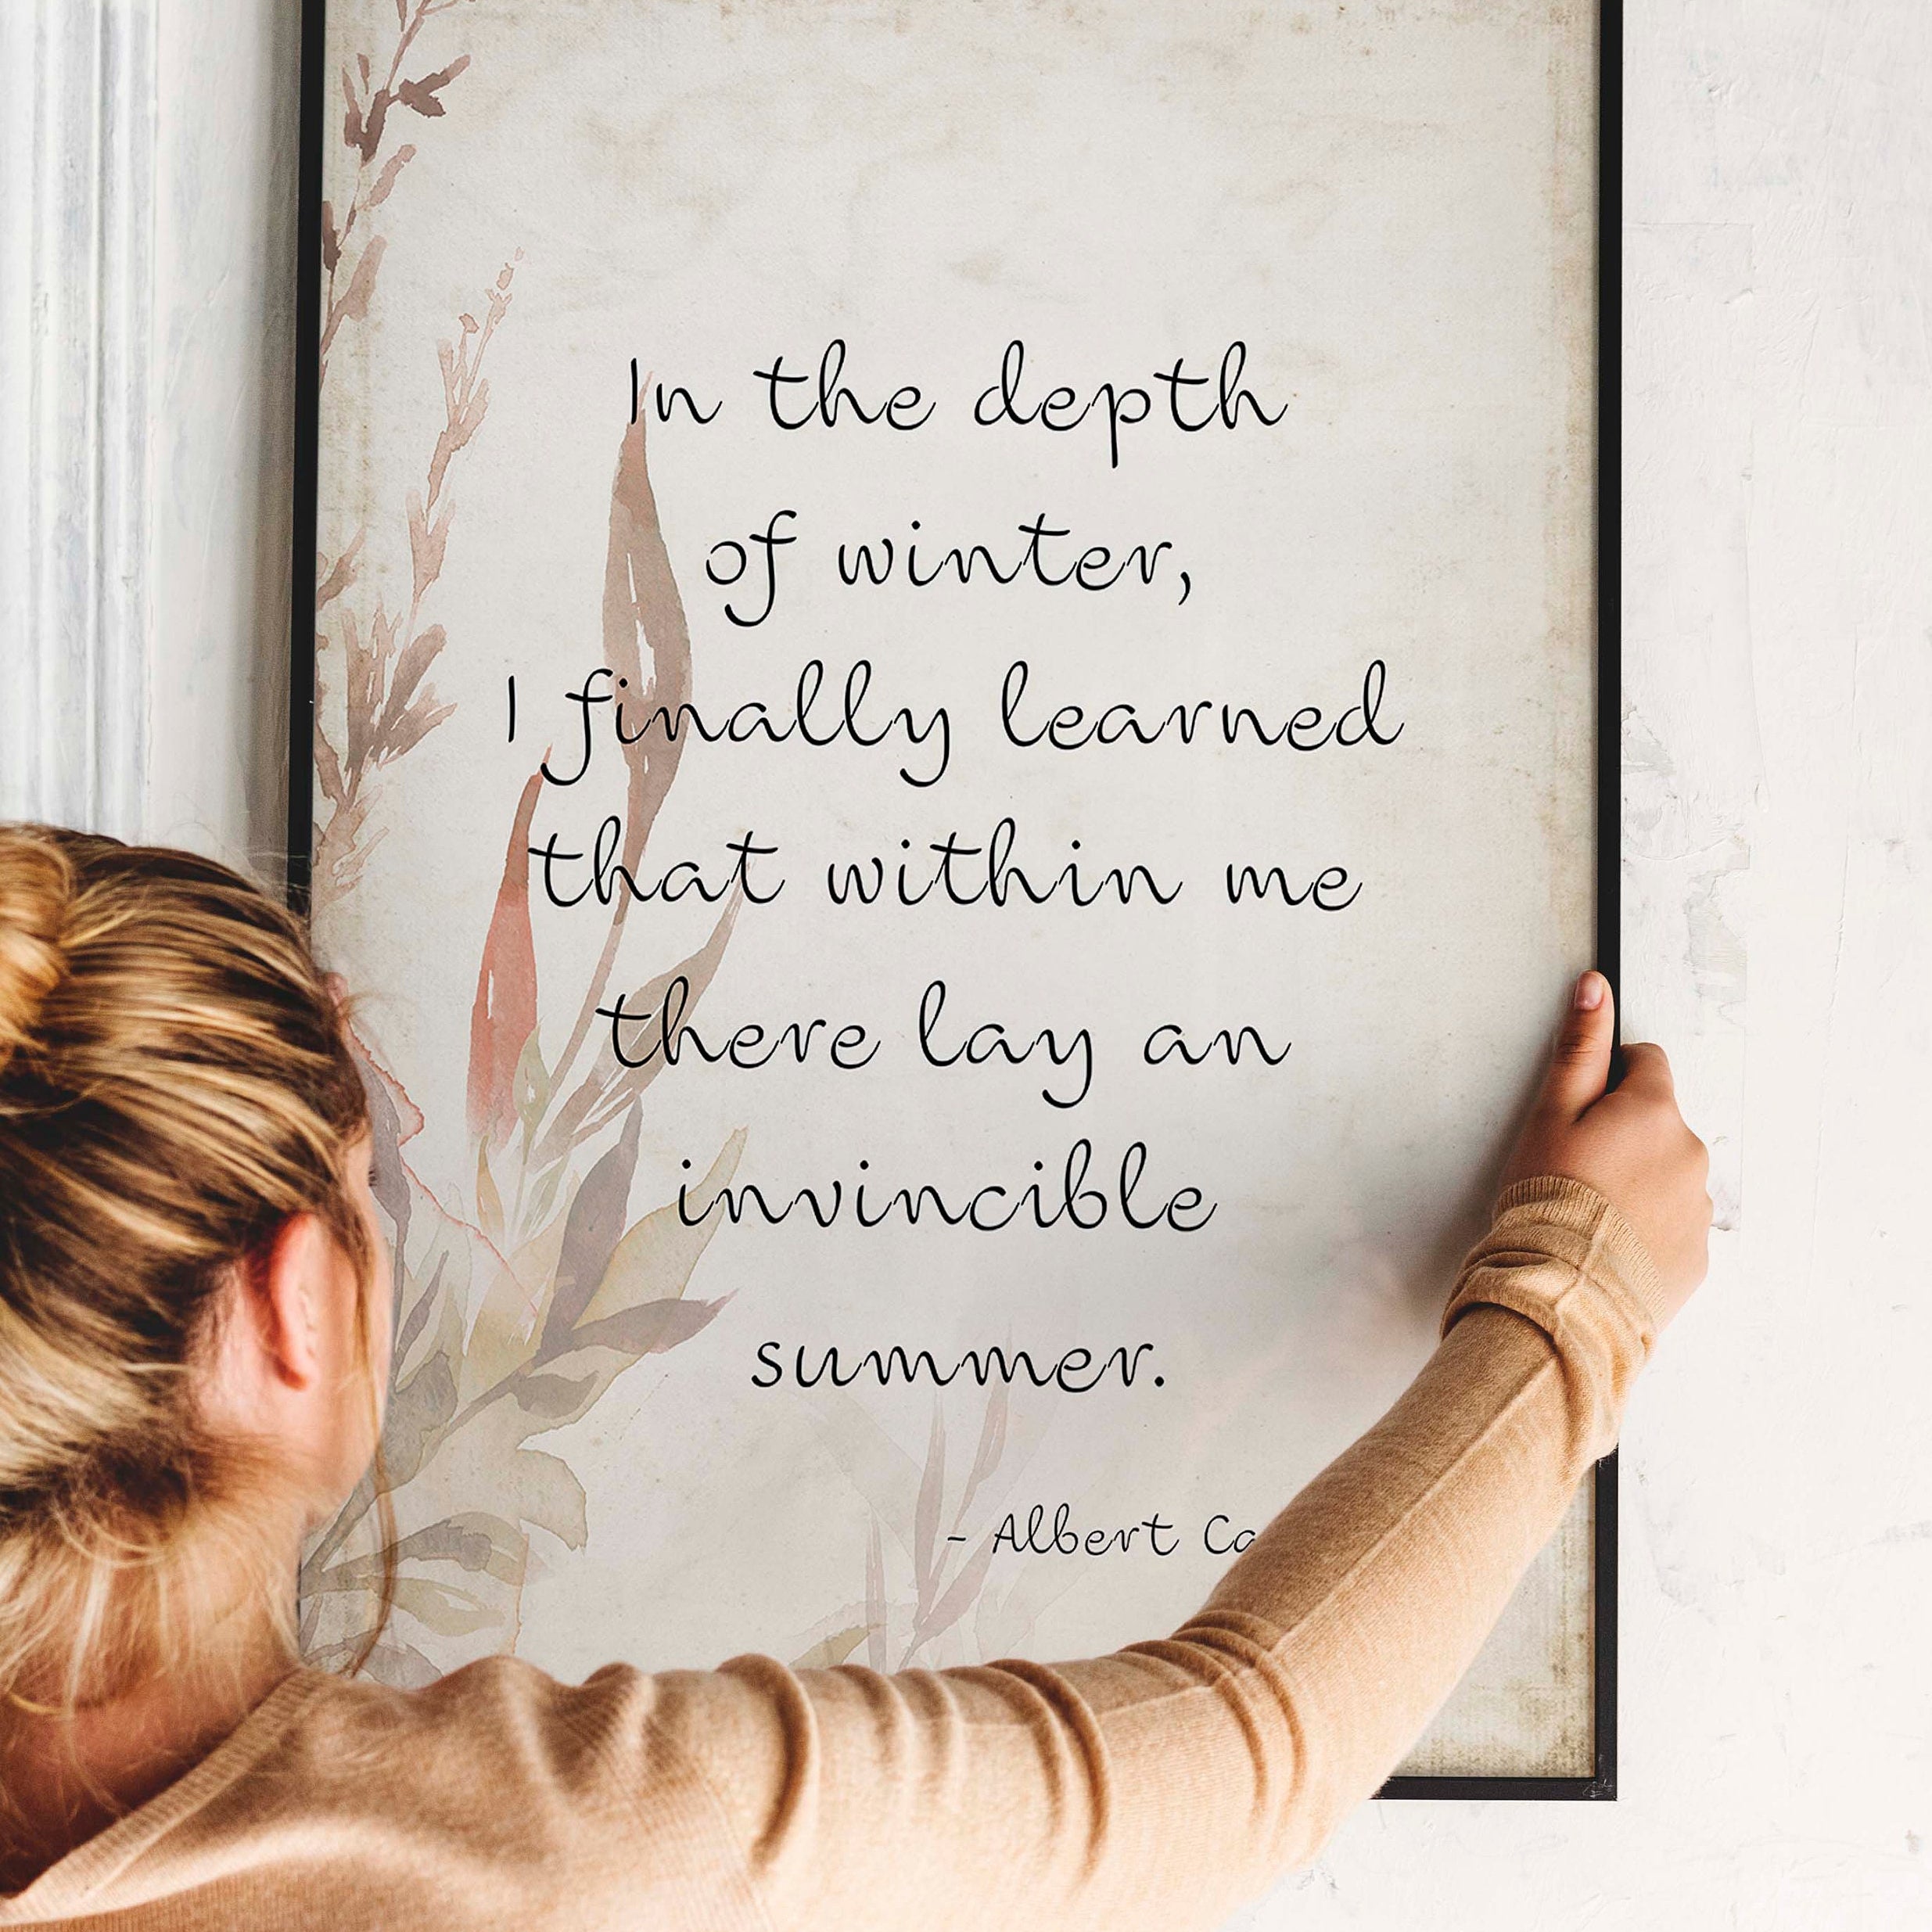 In the depth
of winter,
I finally learned
that within me
there lay an
invincible
summer.
- Albert